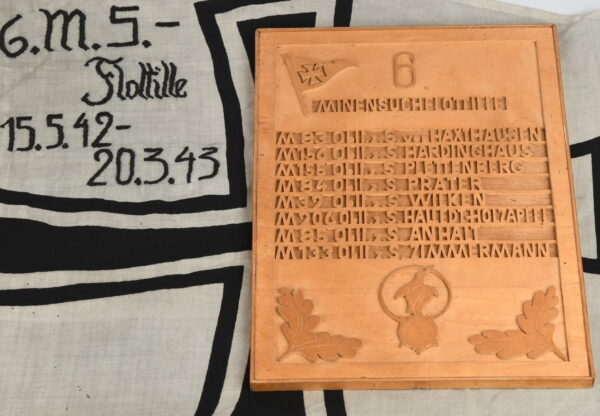 6.M.S.-
Flottille
15.5.42-
20.3.43
6.
MINENSUCHFLOTILLE
M 83 OLT. z. S. v. HAXTHAUSEN
M 156 OLT. z. S. HARDINGHAUS
M 155 OLT. z. S. PLETTENBERG
M 84 OLT. z. S. PRATER
M 32 OLT. z. S. WILKEN
M 206 OLT. z. S. HALLEDT-HOLZAPFEL
M 85 OLT. z. S. ANHALT
M 133 OLT. z. S. ZIMMERMANN